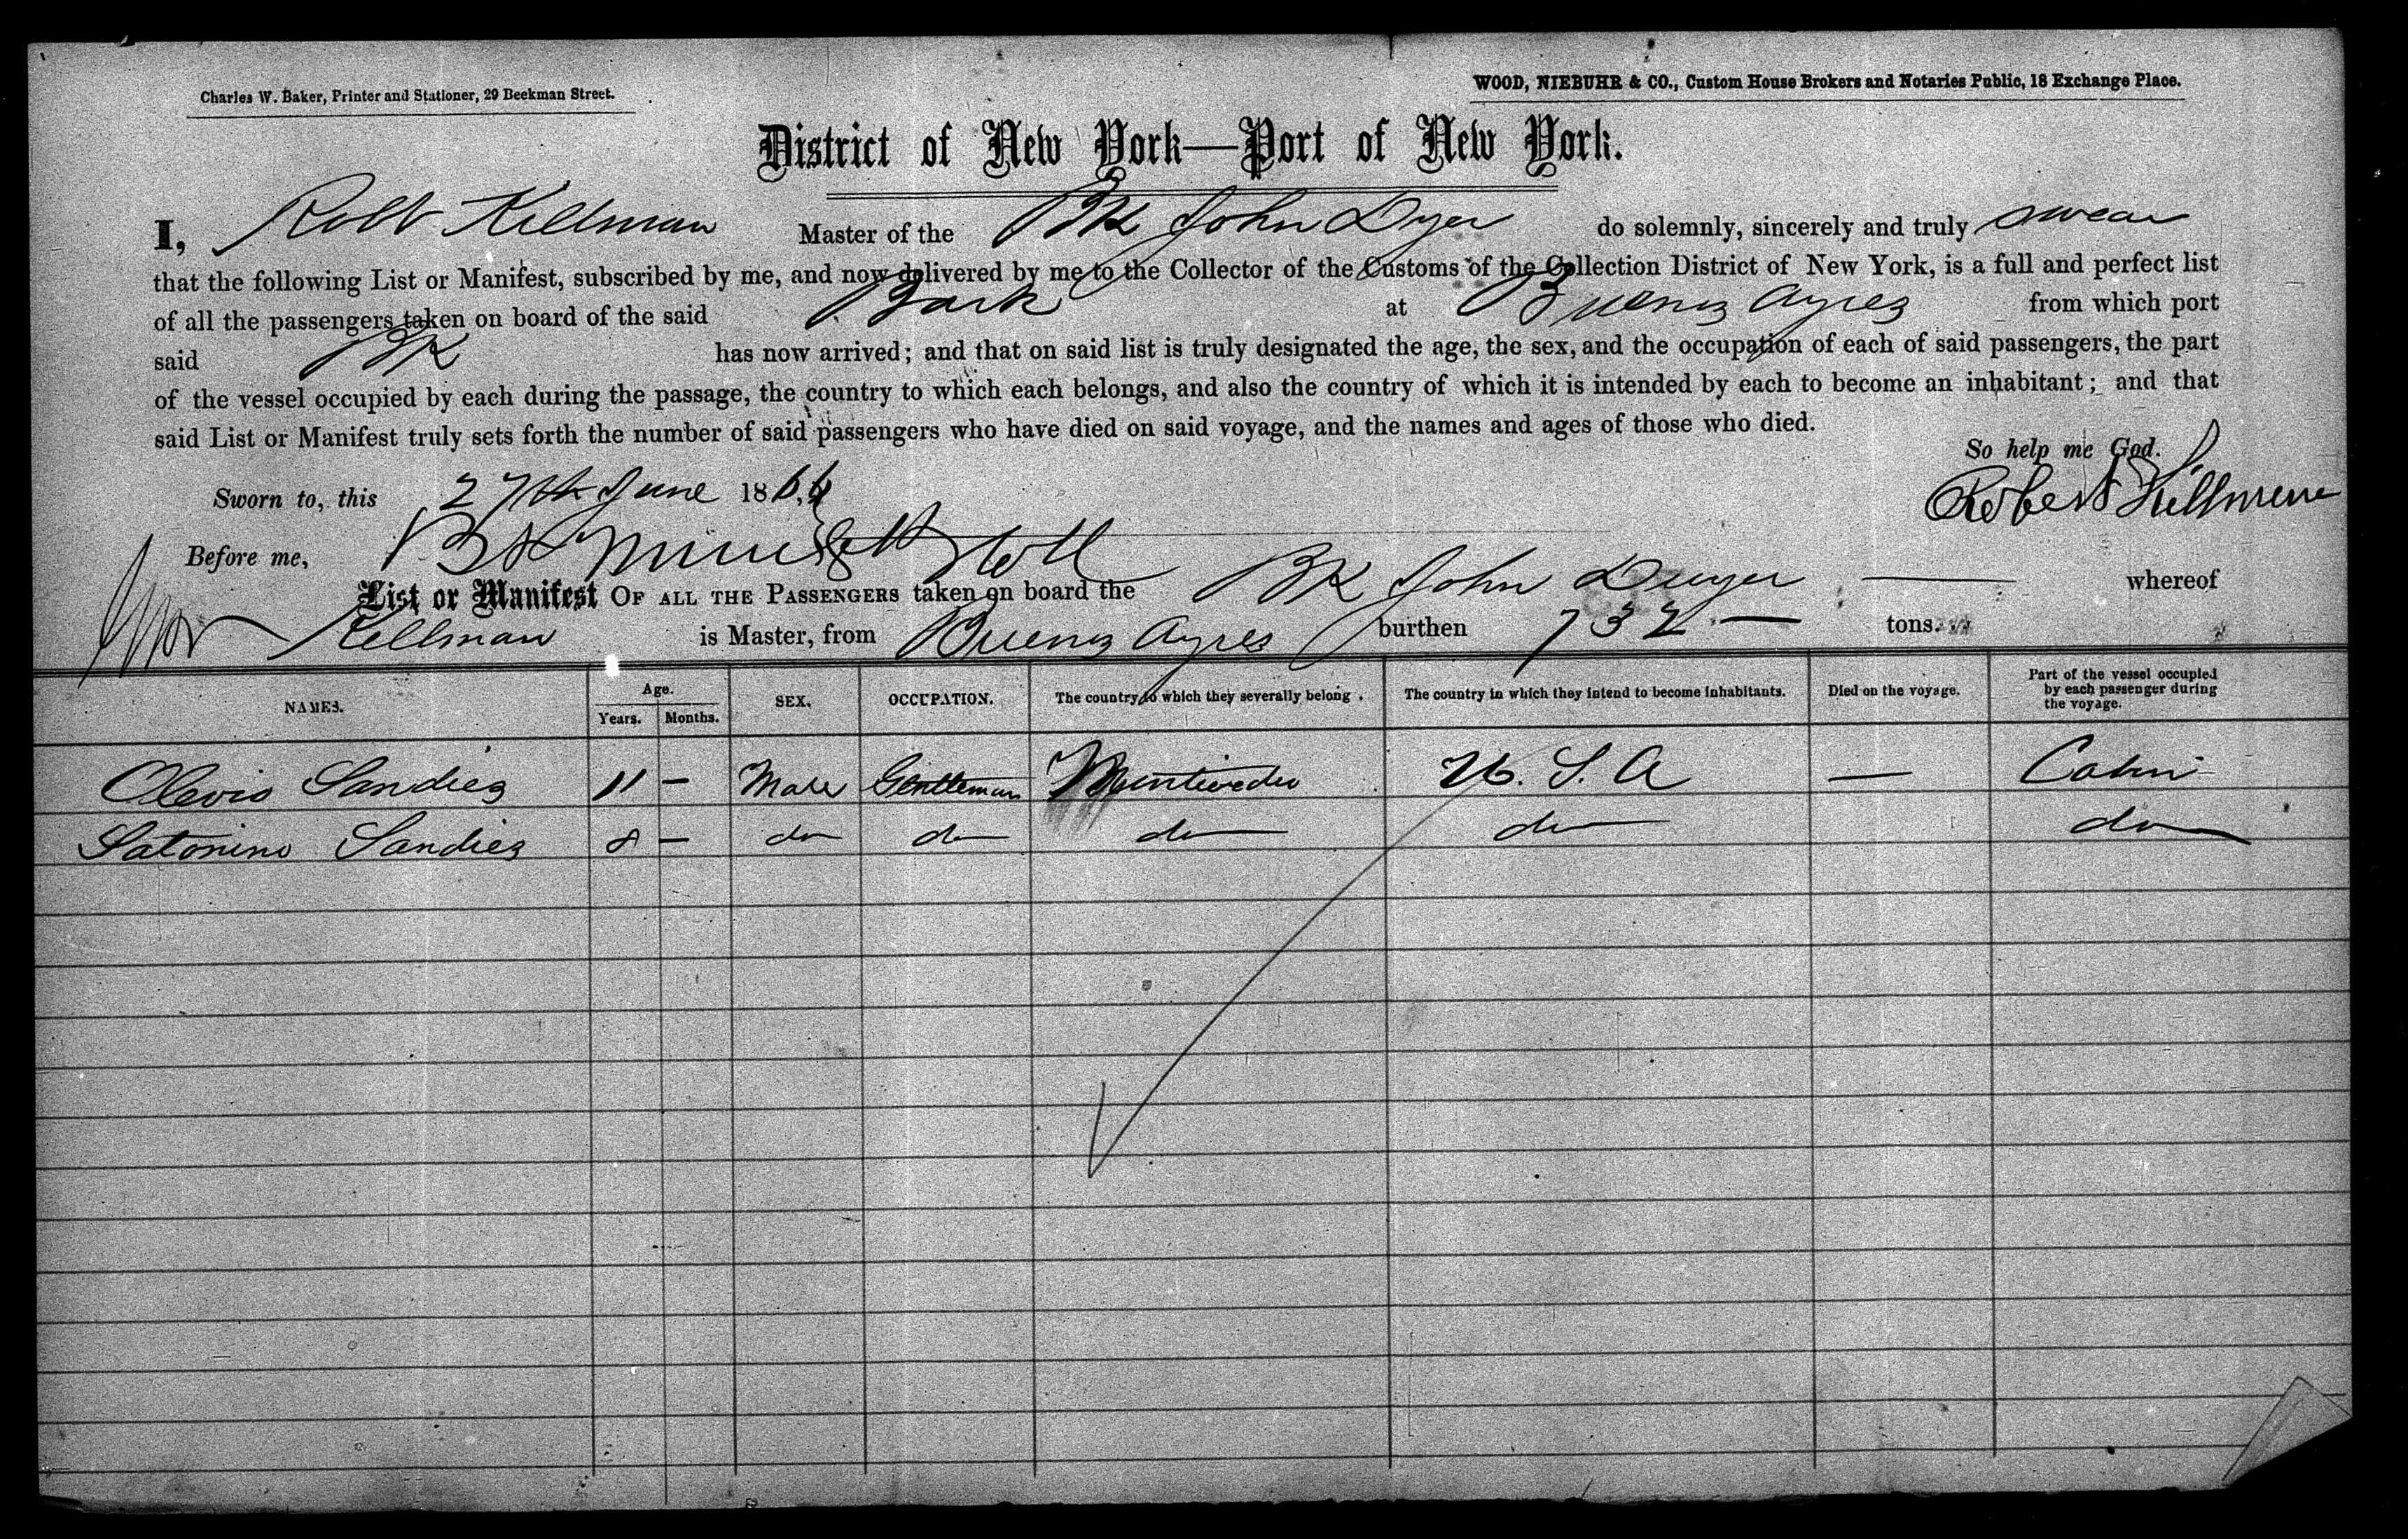 Charles W. Baker, Printer and Stationer, 29 Beekman Street.
WOOD, NIEBUHR & CO., Custom House Brokers and Notaries Public, 18 Exchange Place.
District of New York—Port of New York.
I, Robt Killman Master of the Bk John Dyer do solemnly, sincerely and truly swear
that the following List or Manifest, subscribed by me, and now delivered by me to the Collector of the Customs of the Collection District of New York, is a full and perfect list
of all the passengers taken on board of the said Bark at Buenos Ayres from which port
said Bk has now arrived; and that on said list is truly designated the age, the sex, and the occupation of each of said passengers, the part
of the vessel occupied by each during the passage, the country to which each belongs, and also the country of which it is intended by each to become an inhabitant; and that
said List or Manifest truly sets forth the number of said passengers who have died on said voyage, and the names and ages of those who died.
So help me God.
Sworn to, this 27th June 1866
Robert Killman
Before me,
List or Manifest OF ALL THE PASSENGERS taken on board the Bk John Dwyer — whereof
Killman is Master, from Buenos Ayres burthen 732 — tons.
NAMES. Age. Years. Months. SEX. OCCUPATION. The country to which they severally belong. The country in which they intend to become inhabitants. Died on the voyage. Part of the vessel occupied by each passenger during the voyage.
Clevio Sandies 11 — Male Gentleman Montivedio U. S. A — Cabin
Satonino Sandies 8 — do do do do do